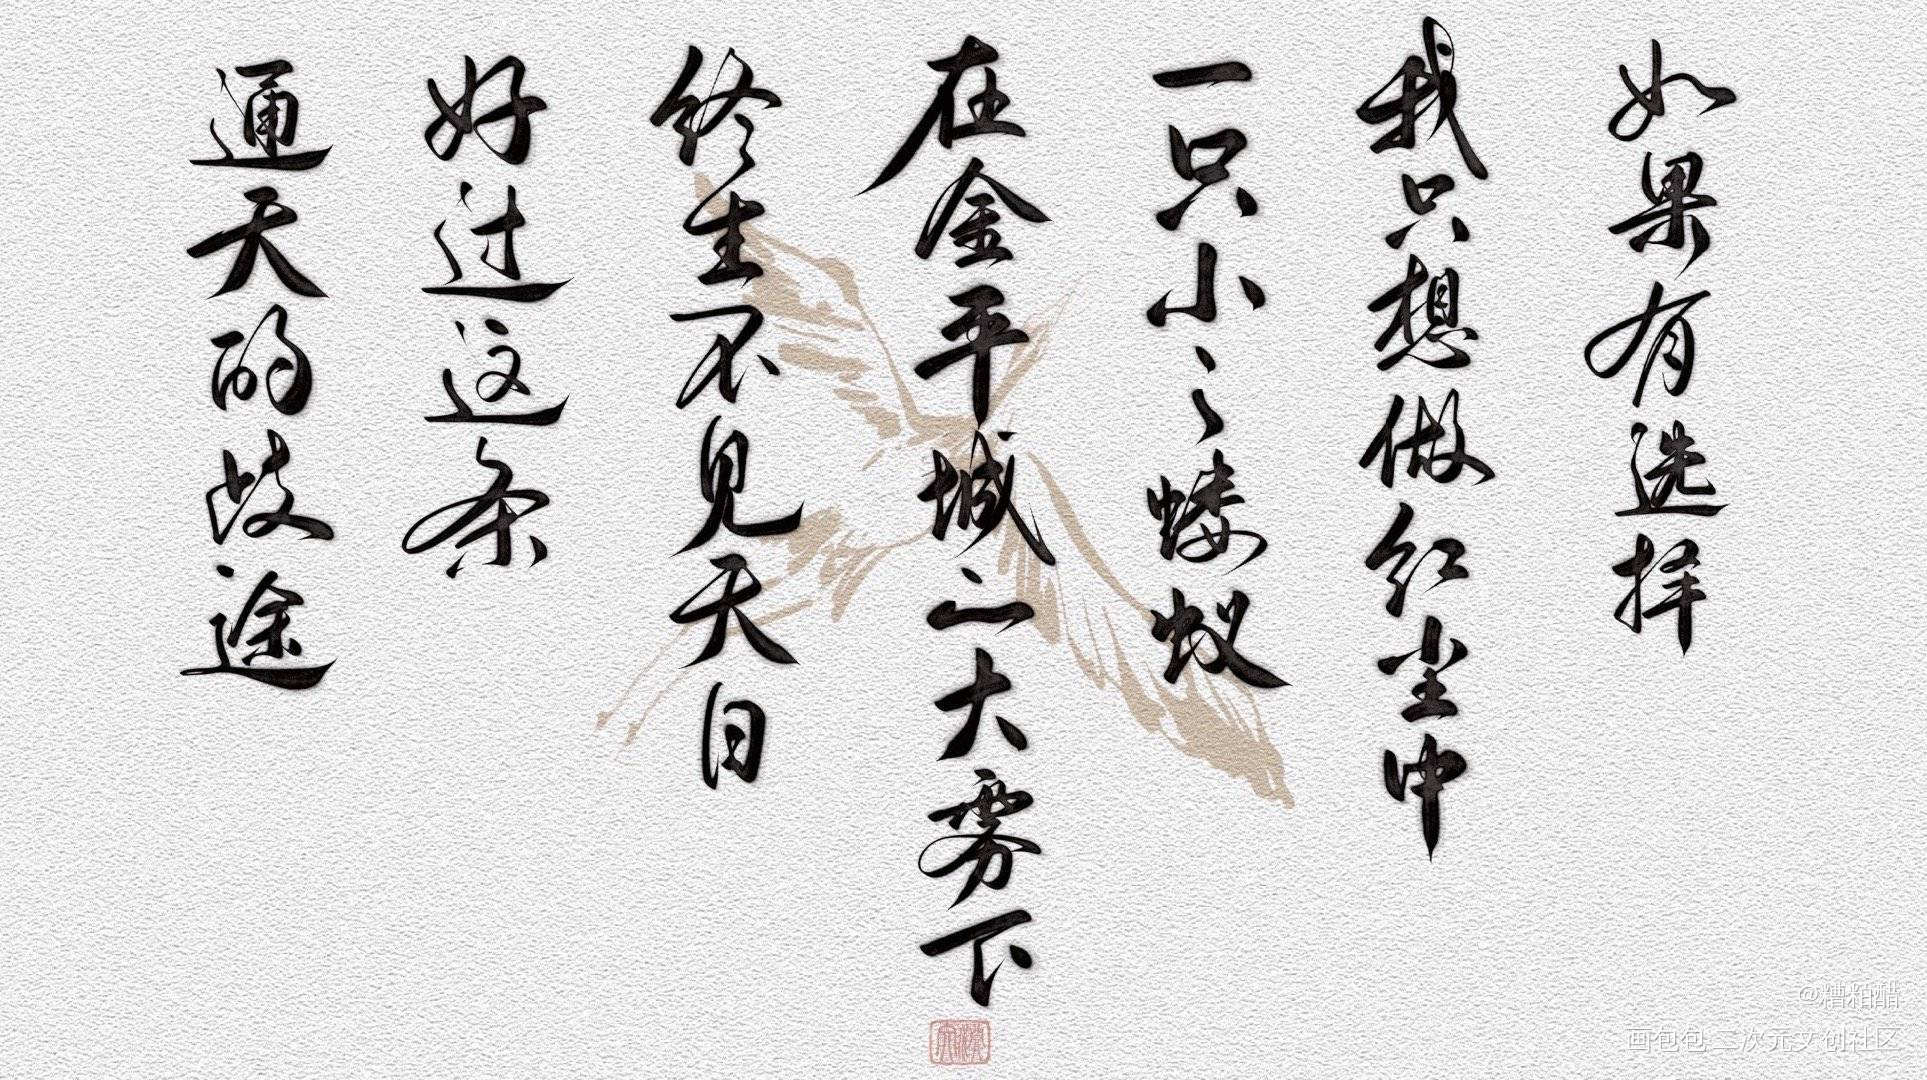 如果有选择
我只想做红尘中
一只小小蝼蚁
在金平城一大雾下
终生不见天日
好过这条
通天的歧途
@糟粕醋
画包包 二次元文创社区